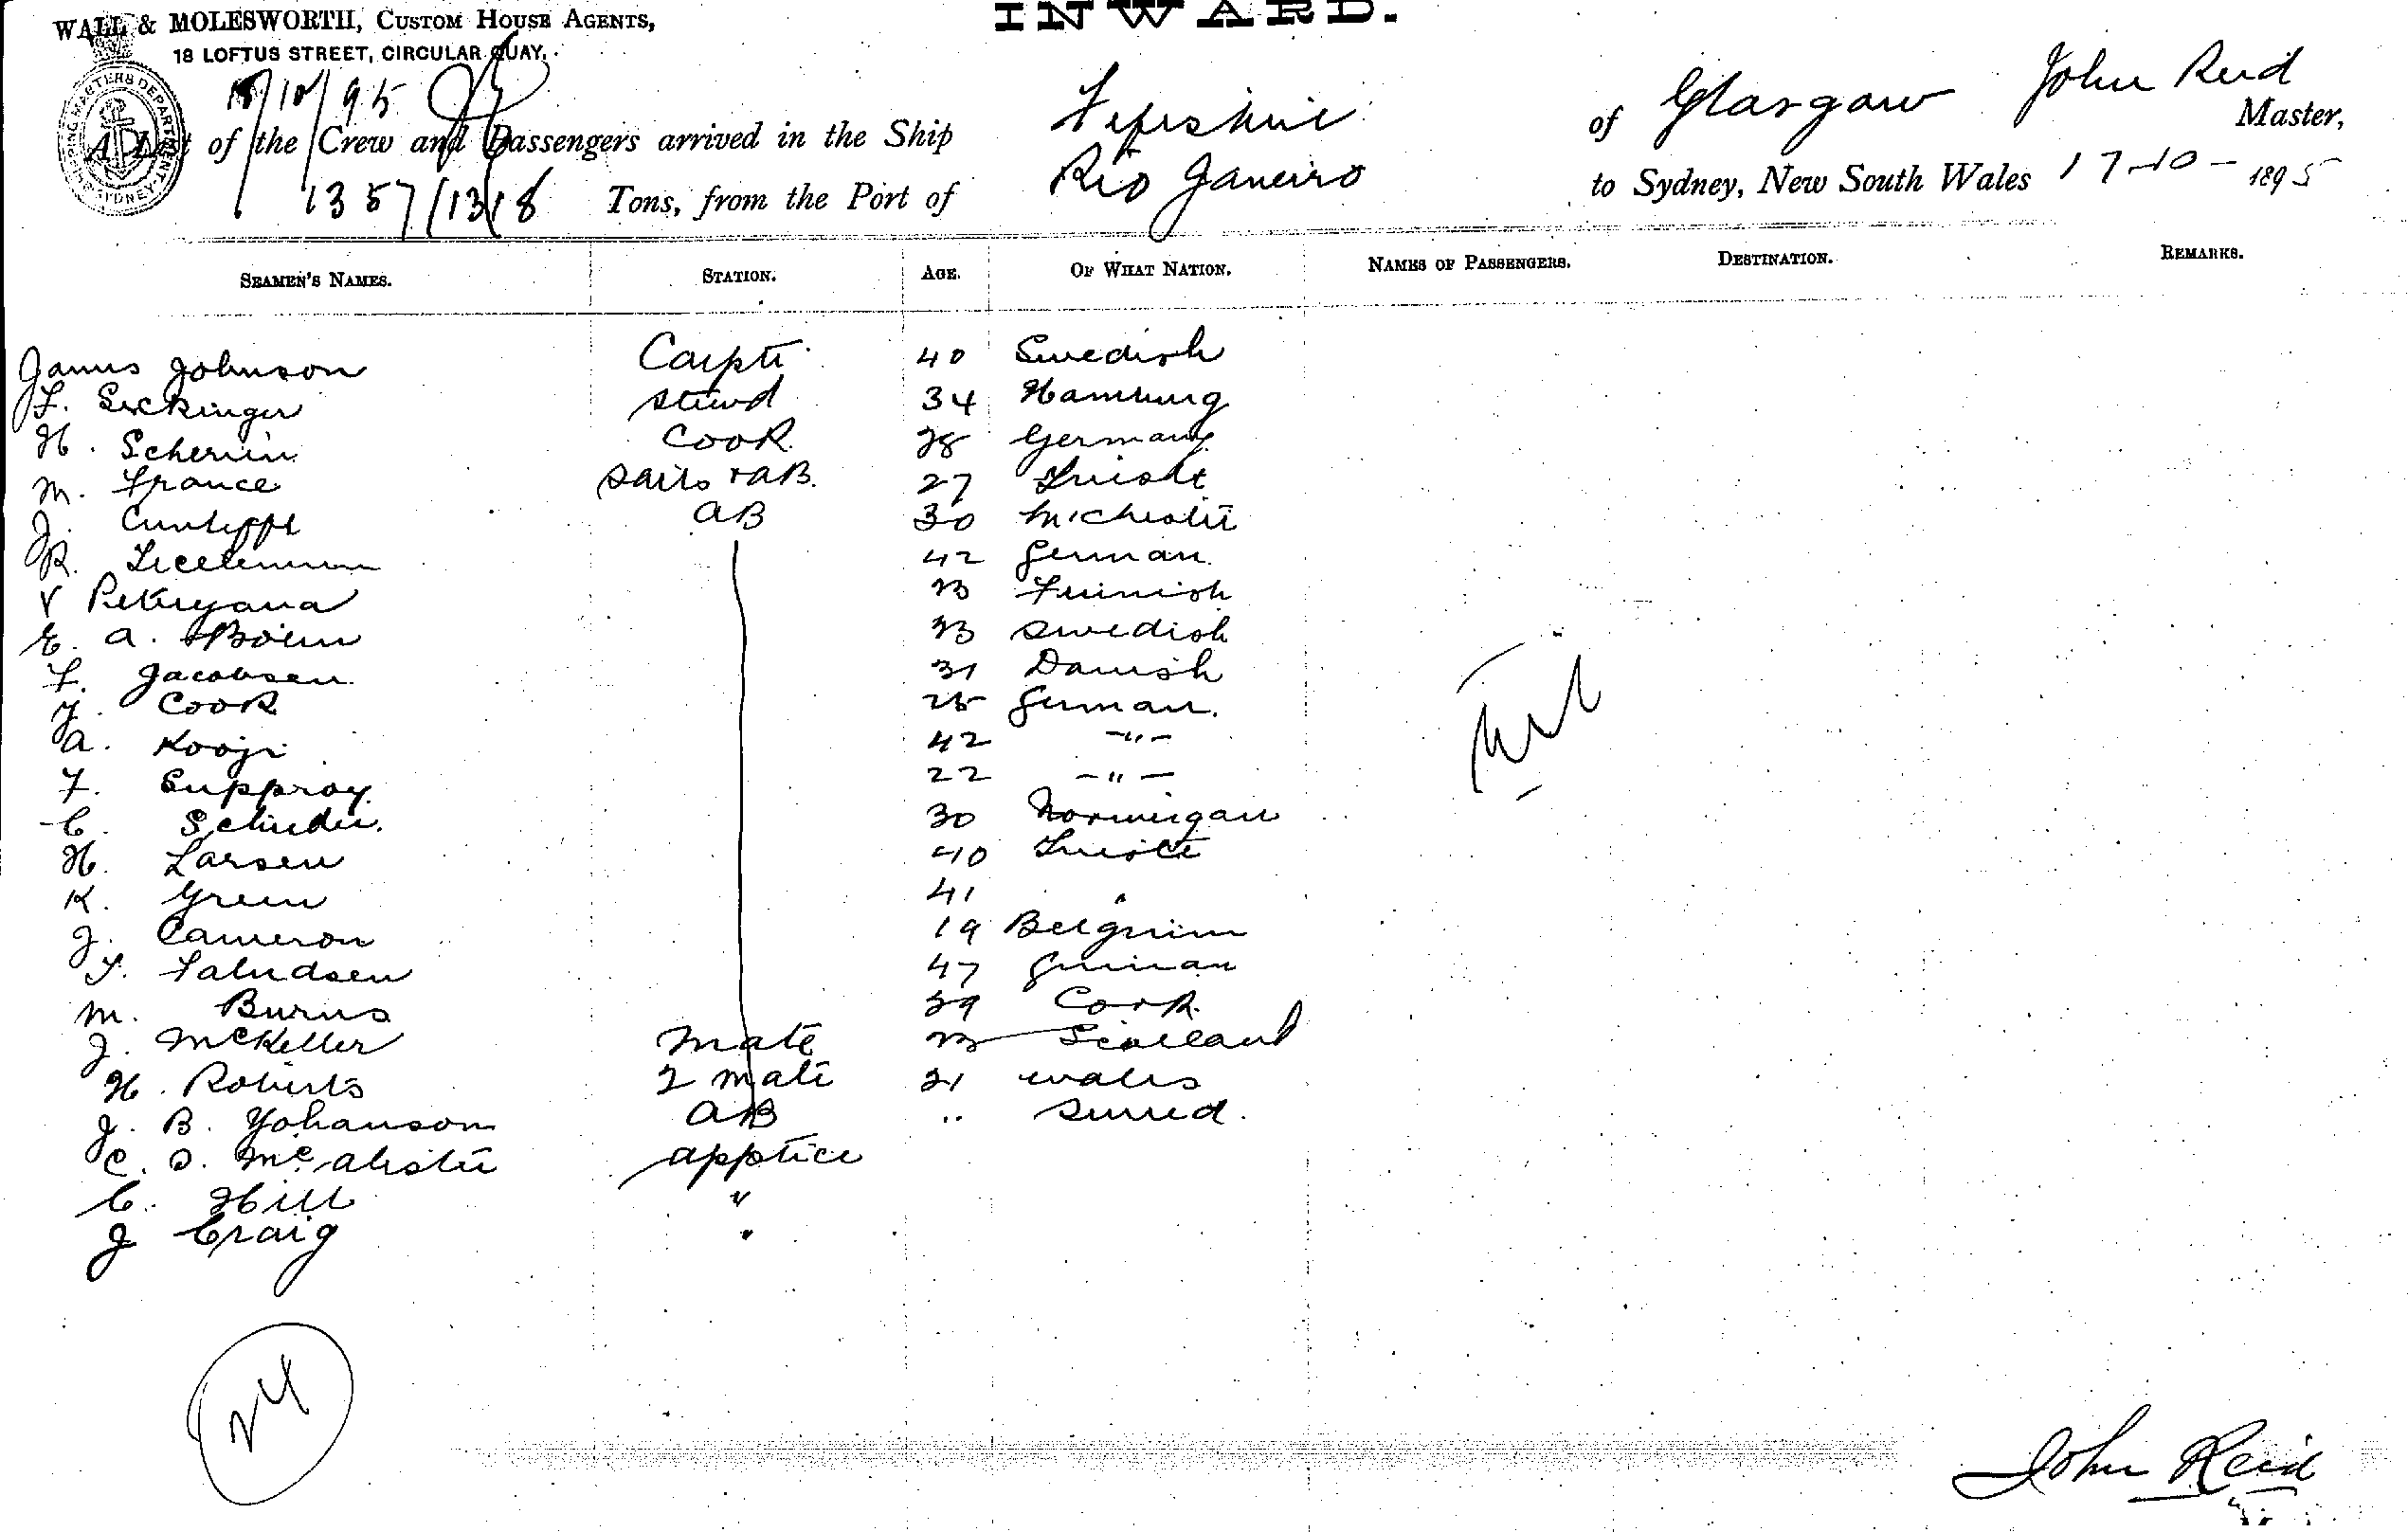 WALL & MOLESWORTH, CUSTOM HOUSE AGENTS,
18 LOFTUS STREET, CIRCULAR QUAY,
INWARD.
18/10/95
A List of the Crew and Passengers arrived in the Ship Fifeshire of Glasgow John Reid Master,
1357/1318 Tons, from the Port of Rio Janeiro to Sydney, New South Wales 17-10-1895
SEAMEN'S NAMES. STATION. AGE. OF WHAT NATION. NAMES OF PASSENGERS. DESTINATION. REMARKS.
James Johnson Carptr 40 Swedish
F. Seckinger Steward 34 Hamburg
H. Scherim Cook 28 Germany
M. France Sails + AB. 27 Trieste
J. Cunliffe AB 30 M'chester
R. 42 German
V 23 Finnish
E. A. 23 Swedish
F. Jacobsen 31 Danish
J. Cook 25 German.
A. Kooji 42 -"-
F. Supproy. 22 -"-
C. 30 Norwegan
H. Larsen 40 Trieste
K. Green 41 "
J. Cameron 19 Belgium
F. 47 German
M. Burns 39 Cork
J. McKeller Mate 23 Scotland
H. Roberts 2 Mate 21 Wales
J. B. Yohanson AB ..
C. D. McAlister Apptice
C. Hill "
J Craig "
Nil
24
John Reid